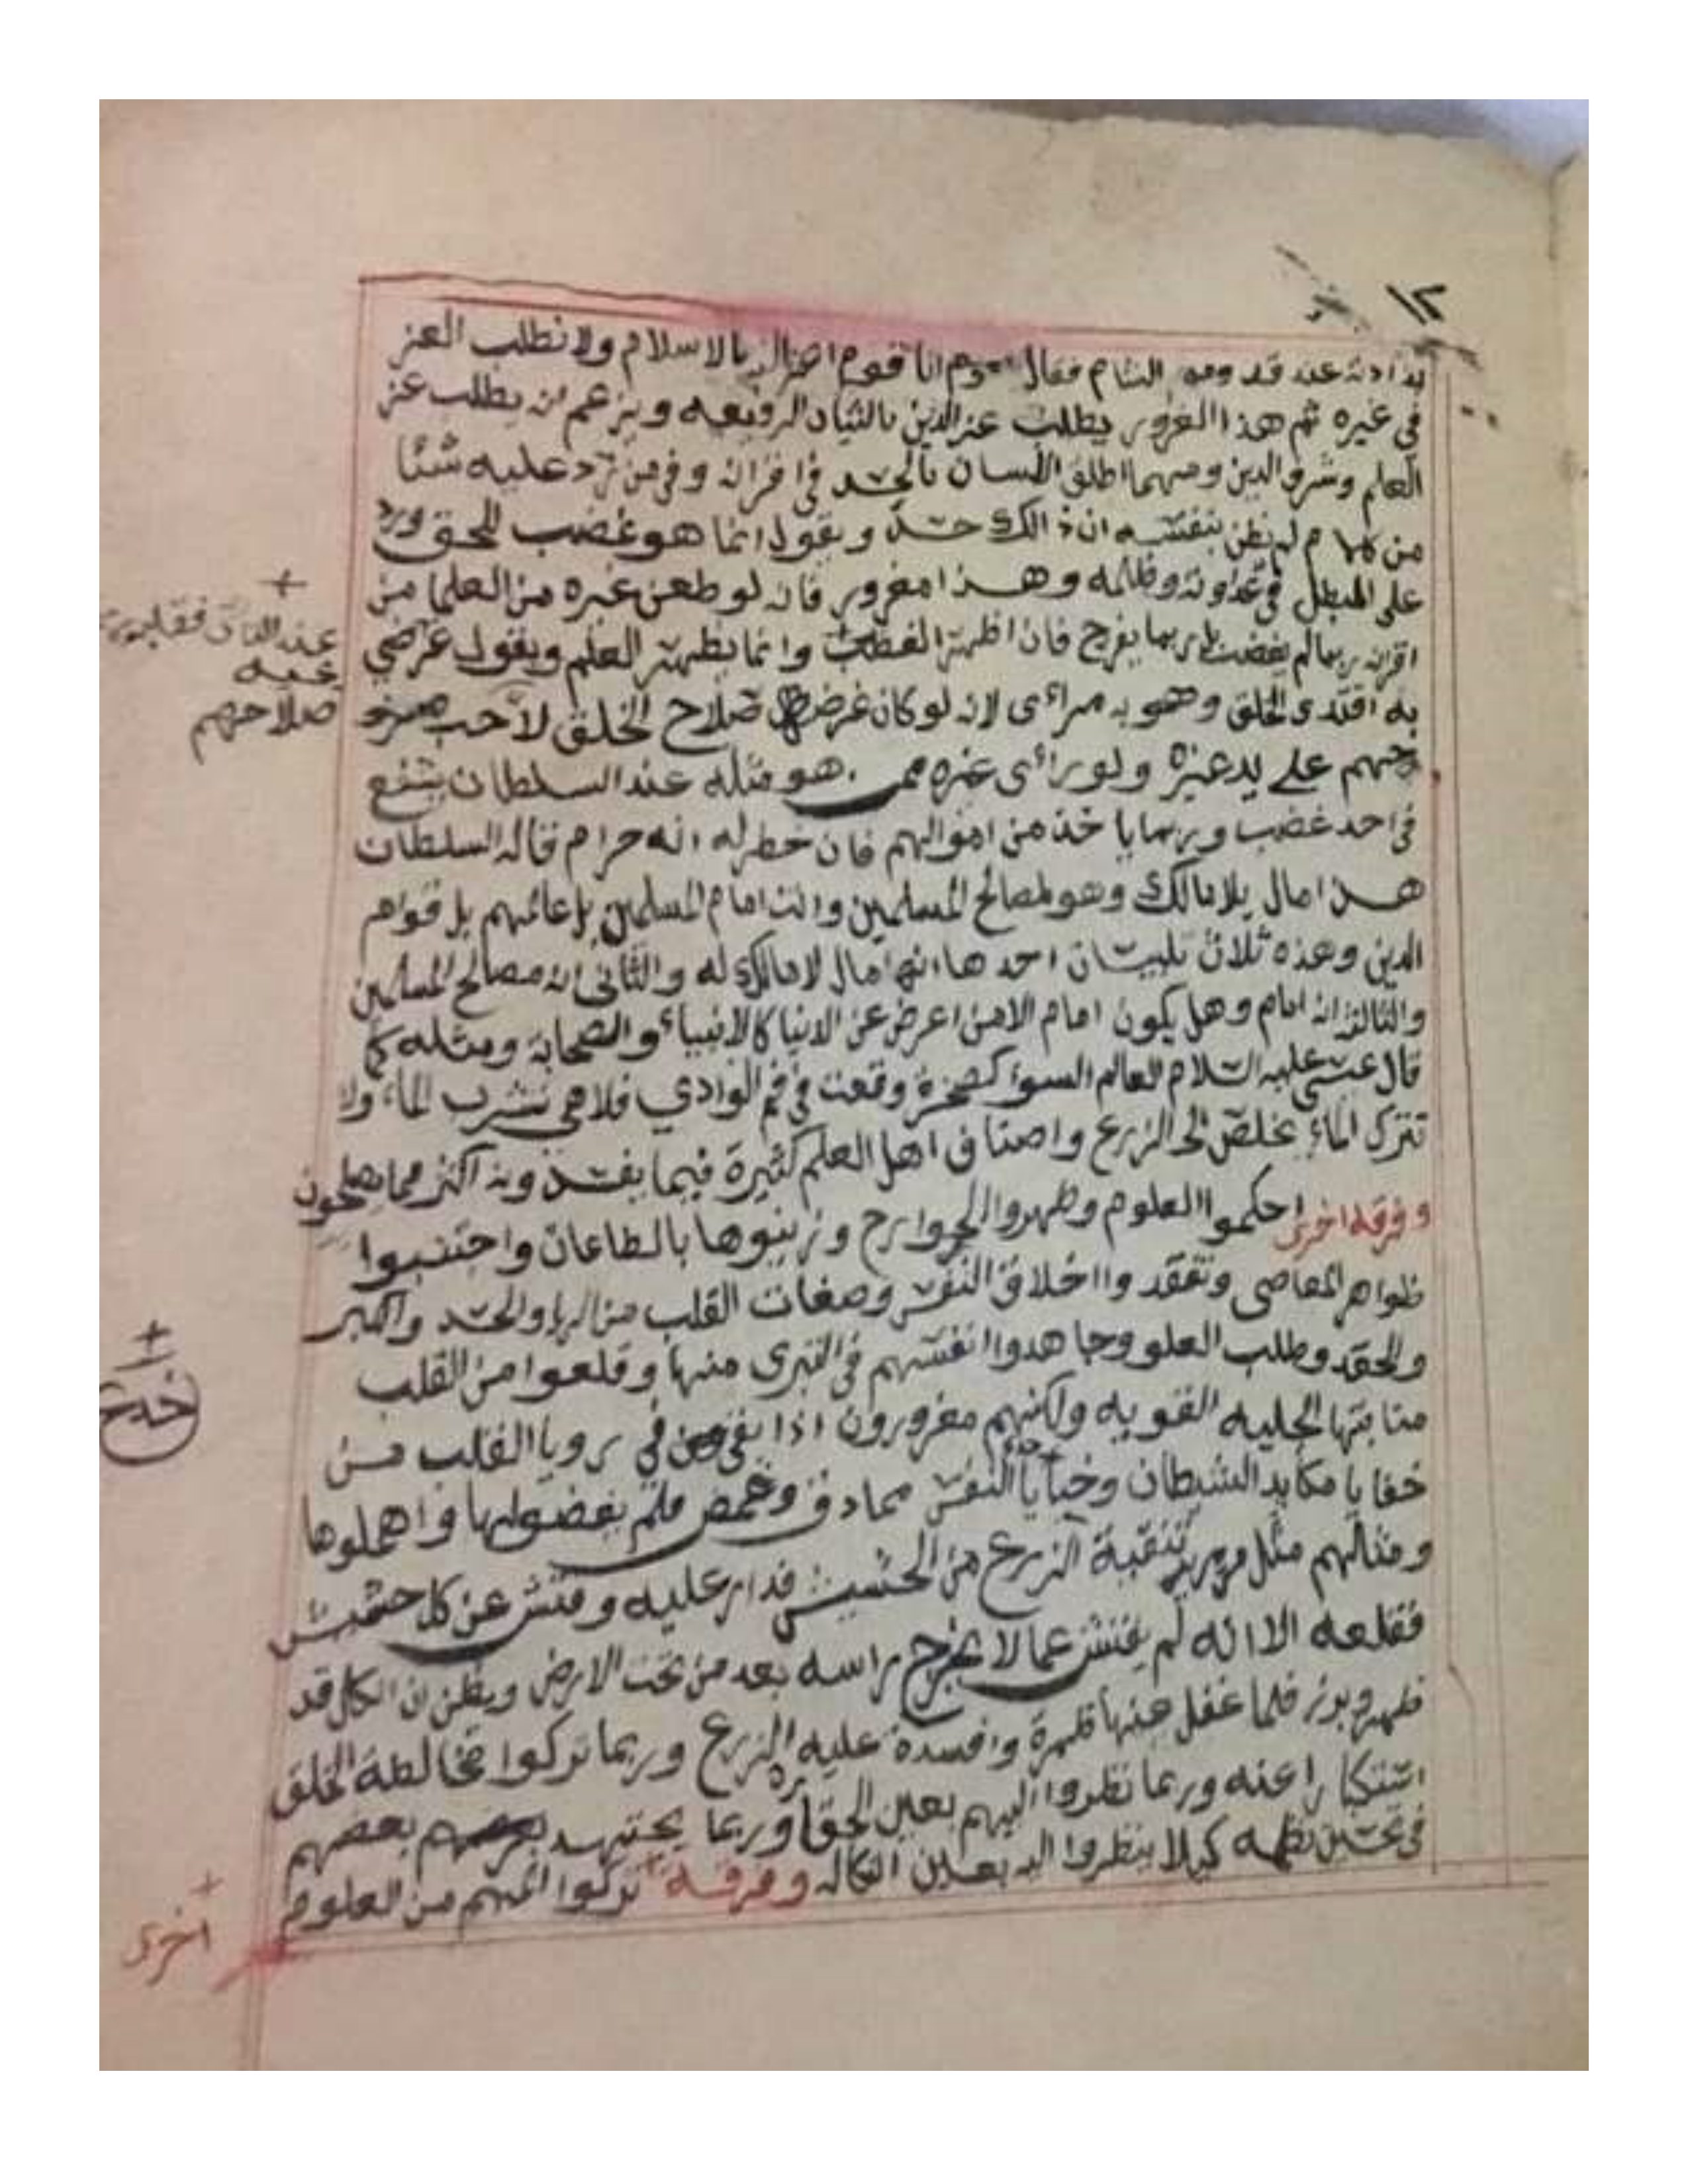 ١٢
عند قدومه الشام فقال انا قوم اعزنا الله بالاسلام ولا نطلب العز
في غيره ثم هذا المغرور يطلب عز الدين بالثياب الرفيعه ويزعم انه يطلب عز
العلم وشرف الدين ومهما اطلق اللسان بالحسد في اقرانه وفي من رد عليه شئا
من كلامه لم يظن بنفسه ان ذالك حسد ويقول انما هو غضب للحق ورد
على المبطل في عداوته وظلمه وهذا مغرور فانه لو طعن غيره من العلما من
اقرانه ربما لم يغضب بل ربما يفرح فان اظهر الغضب وانما يظهر العلم ويقول غرضي
عند الناس
به اقتدى الخلق وهو به مرائى لانه لو كان غرضه صلاح الخلق لاحب
صلاحهم
على يد غيره ولو راى غيره ممن هو مثله عند السلطان يشفع
في احد غضب وربما ياخذ من اموالهم فان خطر له انه حرام قاله السلطان
هذا مال بلا مالك وهو لمصالح المسلمين وانت امام المسلمين بل عالمهم بل قوام
الدين وهذه ثلاث تلبيسان احدها انها مال لا مالك له والثاني انه مصالح المسلمين
والثالث انه امام وهل يكون امام الا من اعرض عن الدنيا كالانبياء والصحابة ومثله كما
قال عيسى عليه السلام العالم السوء كصخرة وقعت في فم الوادي فلا هي تشرب الماء ولا
تترك الماء يخلص الى الزرع واصناف اهل العلم كثيرة فيما يفسدونه اكثر مما يصلحون
وفرقه اخرى احكموا العلوم وطهروا الجوارح وزينوها بالطاعات واجتنبوا
ظواهر المعاصى وتفقدوا اخلاق النفس وصفات القلب من الريا والحسد والكبر
والحقد وطلب العلو وجاهدوا انفسهم في التبرى منها وقلعوا من القلب
منابتها الجليه القويه ولكنهم مغرورون اذا بقى في زوايا القلب من
خفايا مكايد الشيطان وخبايا النفس مما دق وغمض فلم يفضولها واهملوها
خدع
ومثالهم مثل من يريد تنقية الزرع من الحشيش فدار عليه وفتش عن كل حشيش
فقلعه الا انه لم يفتش عما لا يخرج راسه بعد من تحت الارض ويظن ان الكل قد
ظهر وبرز فلما غفل عنها ظهرة وافسدة عليه الزرع وربما تركوا مخالطة الخلق
استكبارا عنه وربما نظروا اليهم بعين الحقارة وربما يجتهد بعضهم
في تحسين نظمه كيلا ينظروا اليه بعين الركاكه وفرقة تركوا المهم من العلوم
اخرى